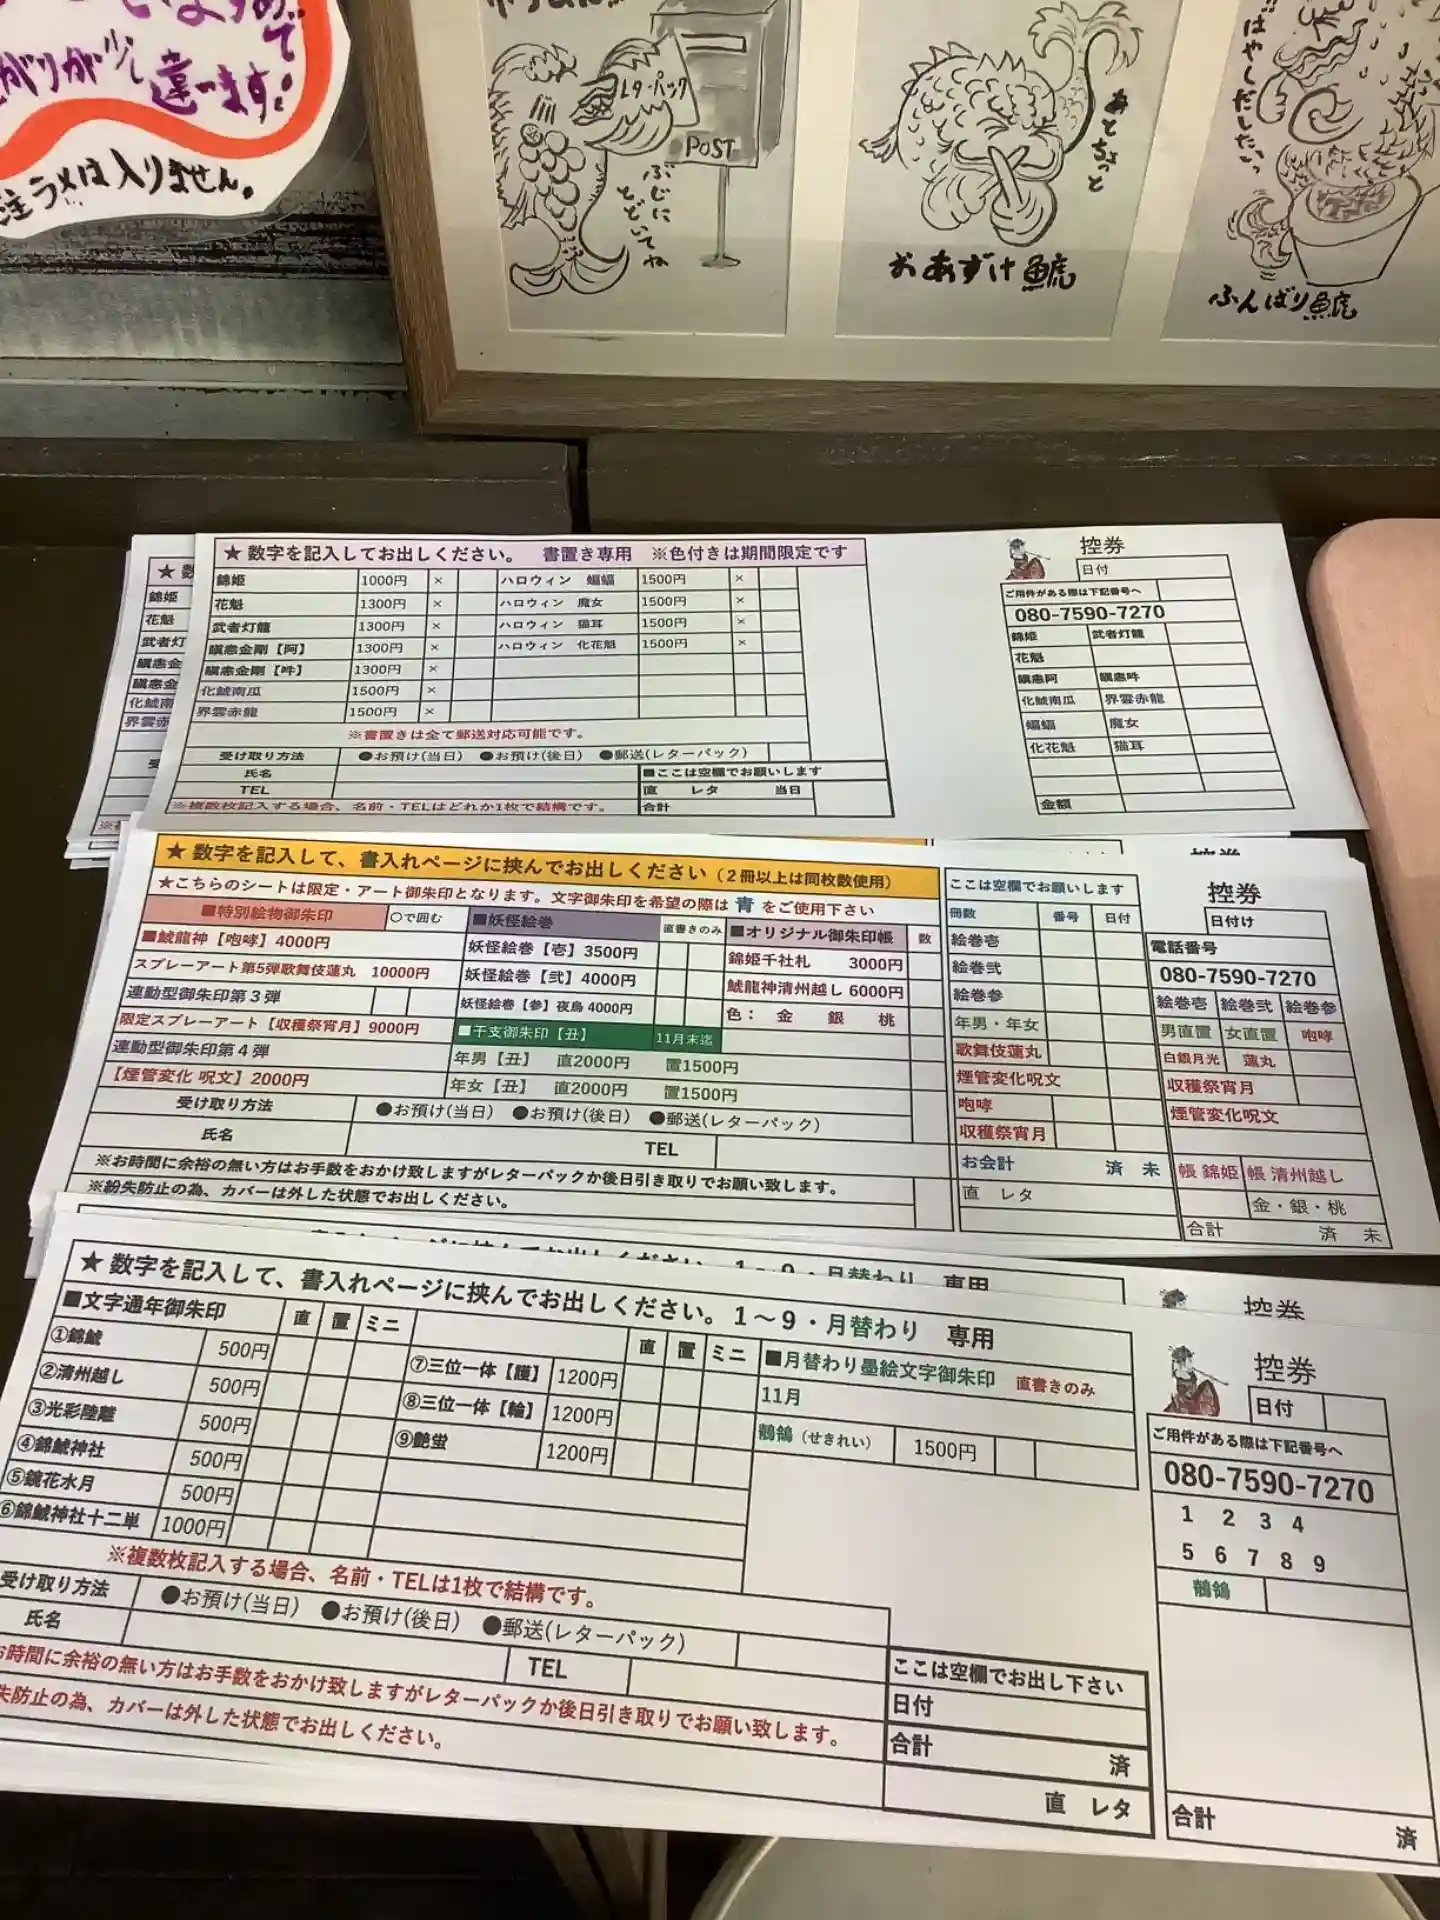 がりが少し違います!
注ラメは入りません。
レターパック
POST
ぶじに
とどいてね
あとちょっと
おあずけ鯱
はやしだしたいっ
ふんばり鯱
★数字を記入してお出しください。 書置き専用 ※色付きは期間限定です
錦姫 1000円 × ハロウィン 蝙蝠 1500円 ×
花魁 1300円 × ハロウィン 魔女 1500円 ×
武者灯籠 1300円 × ハロウィン 猫耳 1500円 ×
瞋恚金剛【阿】 1300円 × ハロウィン 化花魁 1500円 ×
瞋恚金剛【吽】 1300円 ×
化鯱南瓜 1500円 ×
界雲赤龍 1500円 ×
※書置きは全て郵送対応可能です。
受け取り方法 ●お預け(当日) ●お預け(後日) ●郵送(レターパック)
氏名 ■ここは空欄でお願いします
TEL 直 レタ 当日
※複数枚記入する場合、名前・TELはどれか1枚で結構です。 合計
控券
日付
ご用件がある際は下記番号へ
080-7590-7270
錦姫 武者灯籠
花魁
瞋恚阿 瞋恚吽
化鯱南瓜 界雲赤龍
蝙蝠 魔女
化花魁 猫耳
金額
★数字を記入して、書入れページに挟んでお出しください(2冊以上は同枚数使用)
★こちらのシートは限定・アート御朱印となります。文字御朱印を希望の際は 青 をご使用下さい
■特別絵物御朱印 〇で囲む ■妖怪絵巻 直書きのみ ■オリジナル御朱印帳 数
■鯱龍神【咆哮】4000円 妖怪絵巻【壱】3500円 錦姫千社札 3000円
スプレーアート第5弾歌舞伎蓮丸 10000円 妖怪絵巻【弐】4000円 鯱龍神清州越し 6000円
連動型御朱印第3弾 妖怪絵巻【参】夜鳥 4000円 色: 金 銀 桃
限定スプレーアート【収穫祭宵月】9000円 ■干支御朱印【丑】 11月末迄
連動型御朱印第4弾 年男【丑】 直2000円 置1500円
【煙管変化 呪文】2000円 年女【丑】 直2000円 置1500円
受け取り方法 ●お預け(当日) ●お預け(後日) ●郵送(レターパック)
氏名 TEL
※お時間に余裕の無い方はお手数をおかけ致しますがレターパックか後日引き取りでお願い致します。
※紛失防止の為、カバーは外した状態でお出しください。
ここは空欄でお願いします
冊数 番号 日付
絵巻壱
絵巻弐
絵巻参
年男・年女
歌舞伎蓮丸
煙管変化呪文
咆哮
収穫祭宵月
お会計 済 未
直 レタ
控券
日付け
電話番号
080-7590-7270
絵巻壱 絵巻弐 絵巻参
男直置 女直置 咆哮
白銀月光 蓮丸
収穫祭宵月
煙管変化呪文
帳 錦姫 帳 清州越し
金・銀・桃
合計 済 未
★数字を記入して、書入れページに挟んでお出しください。1～9・月替わり 専用
■文字通年御朱印 直 置 ミニ 直 置 ミニ ■月替わり墨絵文字御朱印 直書きのみ
①錦鯱 500円 ⑦三位一体【護】 1200円 11月
②清州越し 500円 ⑧三位一体【輪】 1200円 鶺鴒(せきれい) 1500円
③光彩陸離 500円 ⑨艶蛍 1200円
④錦鯱神社 500円
⑤鏡花水月 500円
⑥錦鯱神社十二単 1000円
※複数枚記入する場合、名前・TELは1枚で結構です。
受け取り方法 ●お預け(当日) ●お預け(後日) ●郵送(レターパック)
氏名 TEL
お時間に余裕の無い方はお手数をおかけ致しますがレターパックか後日引き取りでお願い致します。
失防止の為、カバーは外した状態でお出しください。
ここは空欄でお出し下さい
日付
合計 済
直 レタ
控券
日付
ご用件がある際は下記番号へ
080-7590-7270
1 2 3 4
5 6 7 8 9
鶺鴒
合計 済